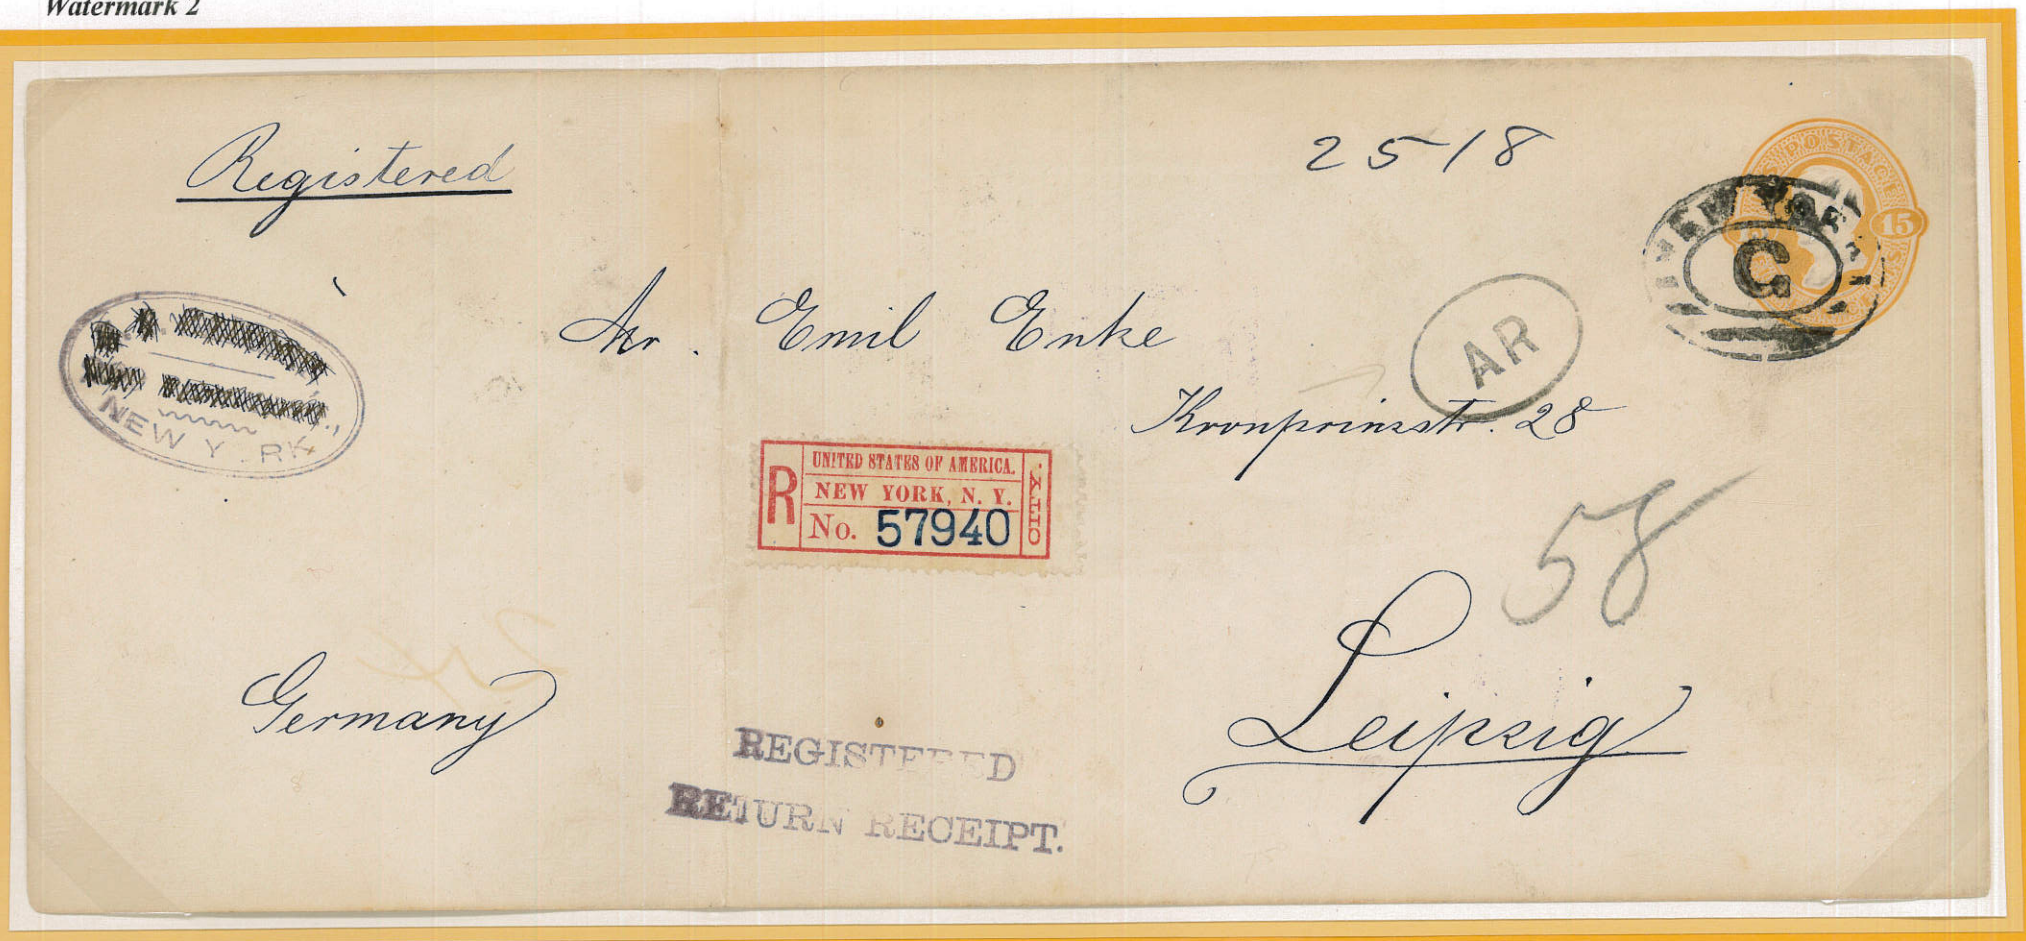 Watermark 2
Registered
2518
POSTAGE
15
NEW YORK
G
AR
NEW Y RK
Mr. Emil Enke
Kronprinzstr. 28
R
UNITED STATES OF AMERICA.
NEW YORK, N. Y.
No. 57940
CITY.
58
Germany
Leipzig
REGISTERED
RETURN RECEIPT.